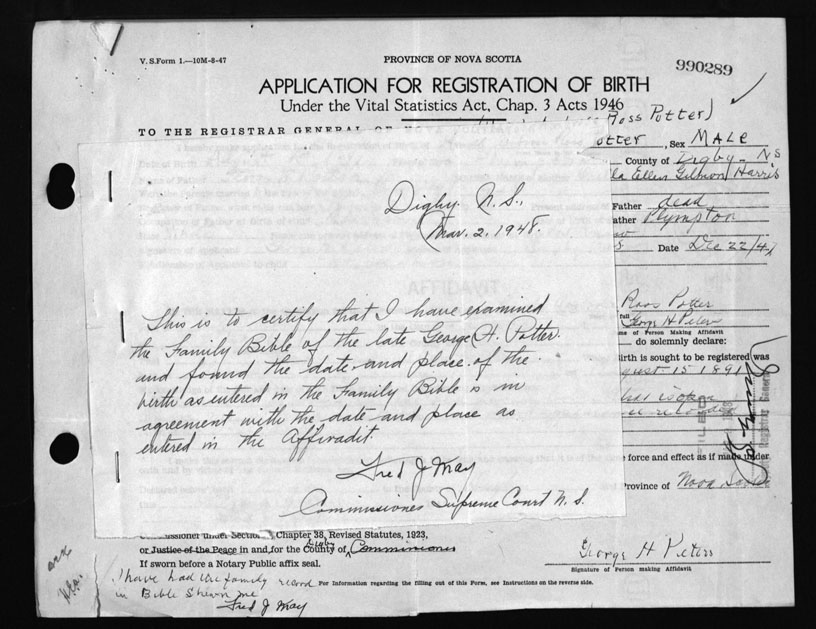 V. S. Form 1.—10M-8-47
PROVINCE OF NOVA SCOTIA
990289
APPLICATION FOR REGISTRATION OF BIRTH
Under the Vital Statistics Act, Chap. 3 Acts 1946
Ross Potter)
TO THE REGISTRAR GENERAL OF NOVA SCOTIA
otter, Sex MALE
County of Digby - N S
la Ellen Gilmon Harris
Father dead
ather Plympton
Date Dec 22/47
Digby. N. S.,
Mar. 2. 1948.
This is to certify that I have examined
the Family Bible of the late George H. Potter.
and found the date and place of the
birth as entered in the Family Bible is in
agreement with the date and place as
entered in the Affivadit.
Fred J May
Commissiones Supreme Court N. S.
Roos Potter
George H Peters
me of Person Making Affidavit
do solemnly declare:
irth is sought to be registered was
gust 15 1891
FILED
Registrar General
force and effect as if made under
Province of Nova Scotia
missioner under Section, Chapter 38, Revised Statutes, 1923,
or Justice of the Peace in and for the County of Digby Commissioner
If sworn before a Notary Public affix seal.
George H Peters
Signature of Person making Affidavit
I have had the family record
For Information regarding the filling out of this Form, see Instructions on the reverse side.
in Bible Shewn me
Fred J May